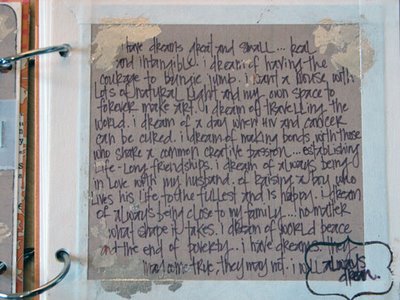 i have dreams great and small... real
and intangible. i dream of having the
courage to bungie jump. i want a house with
lots of natural light and my own space to
forever make art. i dream of travelling the
world. i dream of a day when HIV and cancer
can be cured. i dream of making bonds with those
who share a common creative passion... establishing
life-long friendships. i dream of always being
in love with my husband. of raising a boy who
lives his life to the fullest and is happy. i dream
of always being close to my family... no matter
what shape it takes. i dream of world peace
and the end of poverty. i have dreams they
may come true, they may not. i will always
dream.